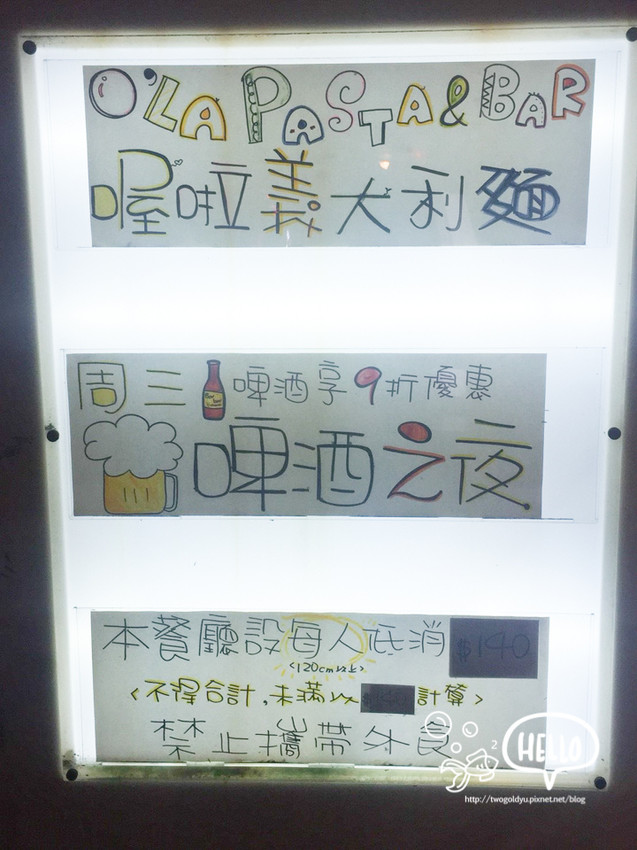 O'LA PASTA & BAR
喔啦義大利麵
周三啤酒享9折優惠
啤酒之夜
本餐廳設每人低消$140
<120cm以上>
<不得合計,未滿以$140計算>
禁止攜帶外食
HELLO
http://twogoldyu.pixnet.net/blog